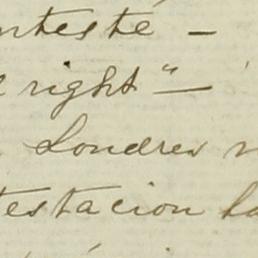 ntesté –
right" –
Londres
testacion